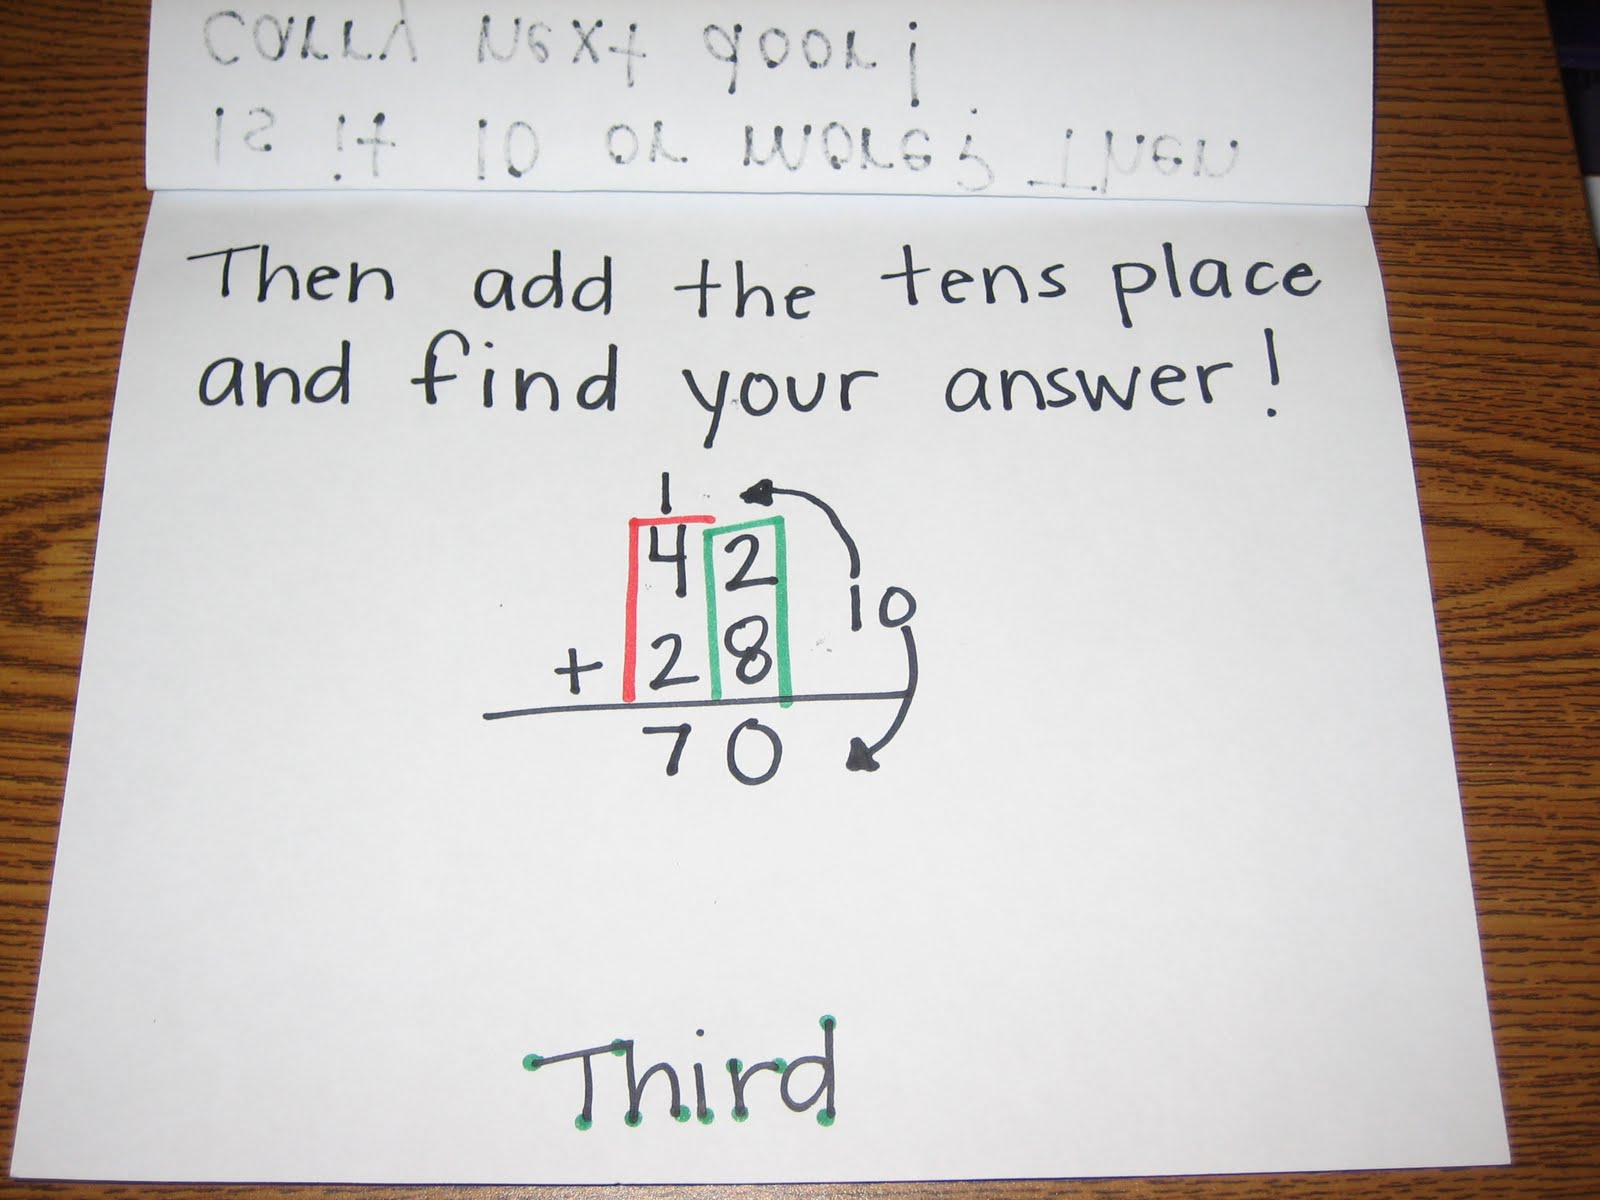 Is it 10 or more? Then
carry next door!
Then add the tens place
and find your answer!
1
42
10
+ 28
70
Third